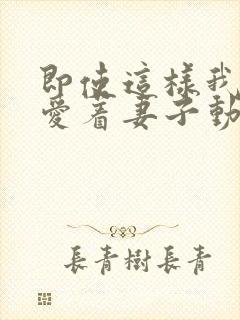 即使這樣我
愛著妻子動
長青樹長青